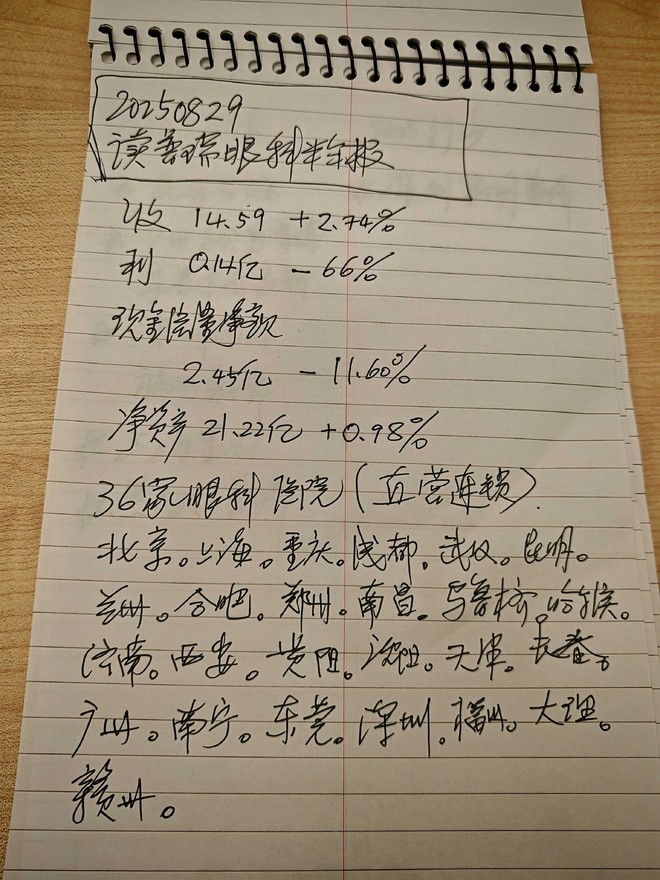 20250829
读普瑞眼科半年报
收 14.59 +2.74%
利 0.14亿 -66%
现金流量净额
2.45亿 -11.60%
净资产 21.22亿 +0.98%
36家眼科医院(直营连锁)
北京。上海。重庆。成都。武汉。昆明。
兰州。合肥。郑州。南昌。乌鲁木齐。哈尔滨。
济南。西安。贵阳。沈阳。天津。长春。
广州。南宁。东莞。深圳。福州。大理。
赣州。